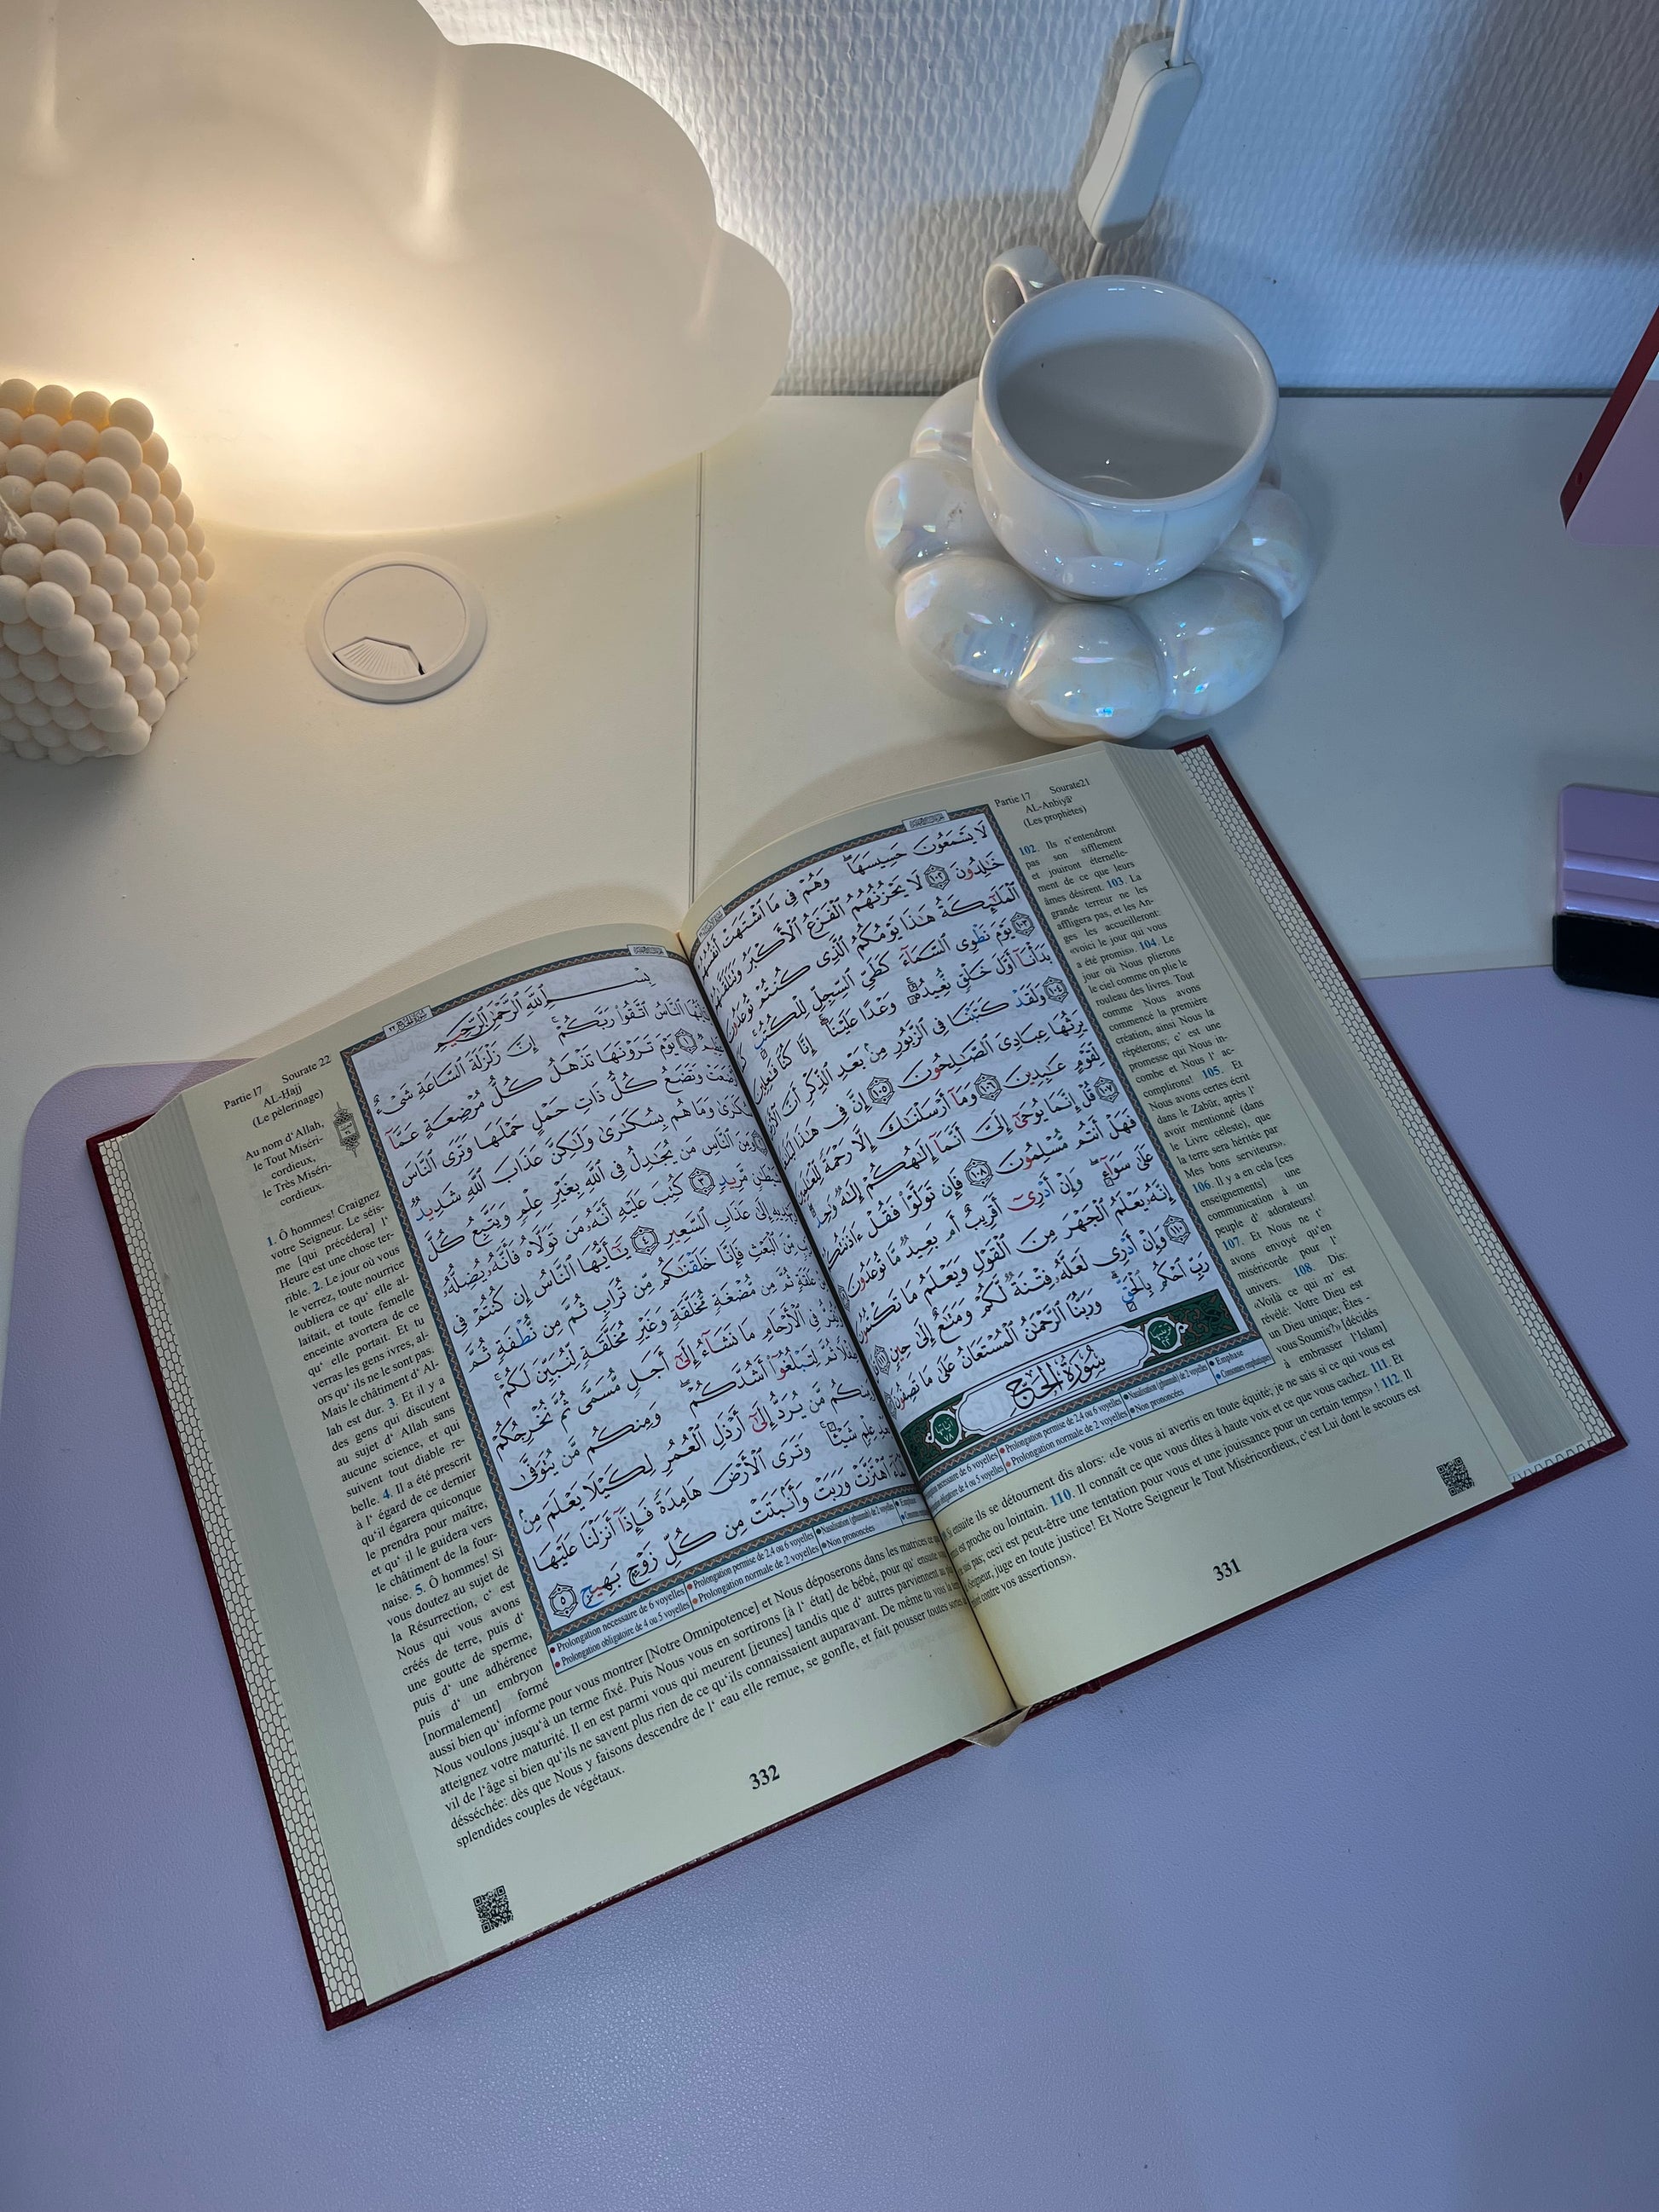 Partie 17 Sourate21
AL-Anbiyâ'
(Les prophètes)
لَا يَسْمَعُونَ حَسِيسَهَا ۖ وَهُمْ فِى مَا ٱشْتَهَتْ أَنفُسُهُمْ
خَٰلِدُونَ ١٠٢ لَا يَحْزُنُهُمُ ٱلْفَزَعُ ٱلْأَكْبَرُ وَتَتَلَقَّىٰهُمُ
ٱلْمَلَٰٓئِكَةُ هَٰذَا يَوْمُكُمُ ٱلَّذِى كُنتُمْ تُوعَدُونَ
١٠٣ يَوْمَ نَطْوِى ٱلسَّمَآءَ كَطَىِّ ٱلسِّجِلِّ لِلْكُتُبِ
بَدَأْنَآ أَوَّلَ خَلْقٍ نُّعِيدُهُۥ ۚ وَعْدًا عَلَيْنَآ ۚ إِنَّا كُنَّا فَٰعِلِينَ
١٠٤ وَلَقَدْ كَتَبْنَا فِى ٱلزَّبُورِ مِنۢ بَعْدِ ٱلذِّكْرِ أَنَّ ٱلْأَرْضَ
يَرِثُهَا عِبَادِىَ ٱلصَّٰلِحُونَ ١٠٥ إِنَّ فِى هَٰذَا لَبَلَٰغًا
لِّقَوْمٍ عَٰبِدِينَ ١٠٦ وَمَآ أَرْسَلْنَٰكَ إِلَّا رَحْمَةً لِّلْعَٰلَمِينَ
١٠٧ قُلْ إِنَّمَا يُوحَىٰٓ إِلَىَّ أَنَّمَآ إِلَٰهُكُمْ إِلَٰهٌ وَٰحِدٌ
فَهَلْ أَنتُم مُّسْلِمُونَ ١٠٨ فَإِن تَوَلَّوْا۟ فَقُلْ ءَاذَنتُكُمْ
عَلَىٰ سَوَآءٍ ۖ وَإِنْ أَدْرِىٓ أَقَرِيبٌ أَم بَعِيدٌ مَّا تُوعَدُونَ
إِنَّهُۥ يَعْلَمُ ٱلْجَهْرَ مِنَ ٱلْقَوْلِ وَيَعْلَمُ مَا تَكْتُمُونَ
١١٠ وَإِنْ أَدْرِى لَعَلَّهُۥ فِتْنَةٌ لَّكُمْ وَمَتَٰعٌ إِلَىٰ حِينٍ ١١١
رَبِّ ٱحْكُم بِٱلْحَقِّ ۗ وَرَبُّنَا ٱلرَّحْمَٰنُ ٱلْمُسْتَعَانُ عَلَىٰ مَا تَصِفُونَ
سُورَةُ الحَجّ
Prolongation permise de 2,4 ou 6 voyelles Nasalisation (ghunnah) de 2 voyelles Emphase
Prolongation normale de 2 voyelles Non prononcées Consonnes emphatiques
102. Ils n'entendront
pas son sifflement
et jouiront éternelle-
ment de ce que leurs
âmes désirent. 103. La
grande terreur ne les
affligera pas, et les An-
ges les accueilleront:
«voici le jour qui vous
a été promis». 104. Le
jour où Nous plierons
le ciel comme on plie le
rouleau des livres. Tout
comme Nous avons
commencé la première
création, ainsi Nous la
répéterons; c' est une
promesse qui Nous in-
combe et Nous l' ac-
complirons! 105. Et
Nous avons certes écrit
dans le Zabûr, après l'
avoir mentionné (dans
le Livre céleste), que
la terre sera héritée par
Mes bons serviteurs».
106. Il y a en cela [ces
enseignements] une
communication à un
peuple d' adorateurs!
107. Et Nous ne t'
avons envoyé qu'en
miséricorde pour l'
univers. 108. Dis:
«Voilà ce qui m' est
révélé: Votre Dieu est
un Dieu unique; Êtes -
vous Soumis?» [décidés
à embrasser l'Islam]
Si ensuite ils se détournent dis alors: «Je vous ai avertis en toute équité; je ne sais si ce qui vous est
est proche ou lointain. 110. Il connaît ce que vous dites à haute voix et ce que vous cachez. 111. Et
pas; ceci est peut-être une tentation pour vous et une jouissance pour un certain temps» ! 112. Il
Seigneur, juge en toute justice! Et Notre Seigneur le Tout Miséricordieux, c'est Lui dont le secours est
contre vos assertions».
331
Partie 17 Sourate 22
AL-Ḥajj
(Le pèlerinage)
بِسْمِ ٱللَّهِ ٱلرَّحْمَٰنِ ٱلرَّحِيمِ
ٱلنَّاسُ ٱتَّقُوا۟ رَبَّكُمْ ۚ إِنَّ زَلْزَلَةَ ٱلسَّاعَةِ شَىْءٌ
عَظِيمٌ ١ يَوْمَ تَرَوْنَهَا تَذْهَلُ كُلُّ مُرْضِعَةٍ عَمَّآ
أَرْضَعَتْ وَتَضَعُ كُلُّ ذَاتِ حَمْلٍ حَمْلَهَا وَتَرَى ٱلنَّاسَ
سُكَٰرَىٰ وَمَا هُم بِسُكَٰرَىٰ وَلَٰكِنَّ عَذَابَ ٱللَّهِ شَدِيدٌ
وَمِنَ ٱلنَّاسِ مَن يُجَٰدِلُ فِى ٱللَّهِ بِغَيْرِ عِلْمٍ وَيَتَّبِعُ كُلَّ
شَيْطَٰنٍ مَّرِيدٍ ٣ كُتِبَ عَلَيْهِ أَنَّهُۥ مَن تَوَلَّاهُ فَأَنَّهُۥ يُضِلُّهُۥ
وَيَهْدِيهِ إِلَىٰ عَذَابِ ٱلسَّعِيرِ ٤ يَٰٓأَيُّهَا ٱلنَّاسُ إِن كُنتُمْ فِى
رَيْبٍ مِّنَ ٱلْبَعْثِ فَإِنَّا خَلَقْنَٰكُم مِّن تُرَابٍ ثُمَّ مِن نُّطْفَةٍ ثُمَّ
عَلَقَةٍ ثُمَّ مِن مُّضْغَةٍ مُّخَلَّقَةٍ وَغَيْرِ مُخَلَّقَةٍ لِّنُبَيِّنَ لَكُمْ ۚ
وَنُقِرُّ فِى ٱلْأَرْحَامِ مَا نَشَآءُ إِلَىٰٓ أَجَلٍ مُّسَمًّى ثُمَّ نُخْرِجُكُمْ
طِفْلًا ثُمَّ لِتَبْلُغُوٓا۟ أَشُدَّكُمْ ۖ وَمِنكُم مَّن يُتَوَفَّىٰ
وَمِنكُم مَّن يُرَدُّ إِلَىٰٓ أَرْذَلِ ٱلْعُمُرِ لِكَيْلَا يَعْلَمَ مِنۢ
بَعْدِ عِلْمٍ شَيْـًٔا ۚ وَتَرَى ٱلْأَرْضَ هَامِدَةً فَإِذَآ أَنزَلْنَا عَلَيْهَا
ٱلْمَآءَ ٱهْتَزَّتْ وَرَبَتْ وَأَنۢبَتَتْ مِن كُلِّ زَوْجٍۭ بَهِيجٍ ٥
Prolongation nécessaire de 6 voyelles Prolongation permise de 2,4 ou 6 voyelles Nasalisation (ghunnah) de 2 voyelles Emphase
Prolongation obligatoire de 4 ou 5 voyelles Prolongation normale de 2 voyelles Non prononcées
Au nom d'Allah,
le Tout Miséri-
cordieux,
le Très Miséri-
cordieux.
1. Ô hommes! Craignez
votre Seigneur. Le séis-
me [qui précédera] l'
Heure est une chose ter-
rible. 2. Le jour où vous
le verrez, toute nourrice
oubliera ce qu' elle al-
laitait, et toute femelle
enceinte avortera de ce
qu' elle portait. Et tu
verras les gens ivres, al-
ors qu' ils ne le sont pas.
Mais le châtiment d' Al-
lah est dur. 3. Et il y a
des gens qui discutent
au sujet d' Allah sans
aucune science, et qui
suivent tout diable re-
belle. 4. Il a été prescrit
à l' égard de ce dernier
qu'il égarera quiconque
le prendra pour maître,
et qu' il le guidera vers
le châtiment de la four-
naise. 5. Ô hommes! Si
vous doutez au sujet de
la Résurrection, c' est
Nous qui vous avons
créés de terre, puis d'
une goutte de sperme,
puis d' une adhérence
puis d' un embryon
[normalement] formé
aussi bien qu' informe pour vous montrer [Notre Omnipotence] et Nous déposerons dans les matrices ce que
Nous voulons jusqu'à un terme fixé. Puis Nous vous en sortirons [à l' état] de bébé, pour qu' ensuite vous
atteignez votre maturité. Il en est parmi vous qui meurent [jeunes] tandis que d' autres parviennent au plus
vil de l'âge si bien qu'ils ne savent plus rien de ce qu'ils connaissaient auparavant. De même tu vois la terre
désséchée: dès que Nous y faisons descendre de l' eau elle remue, se gonfle, et fait pousser toutes sortes de
splendides couples de végétaux.
332